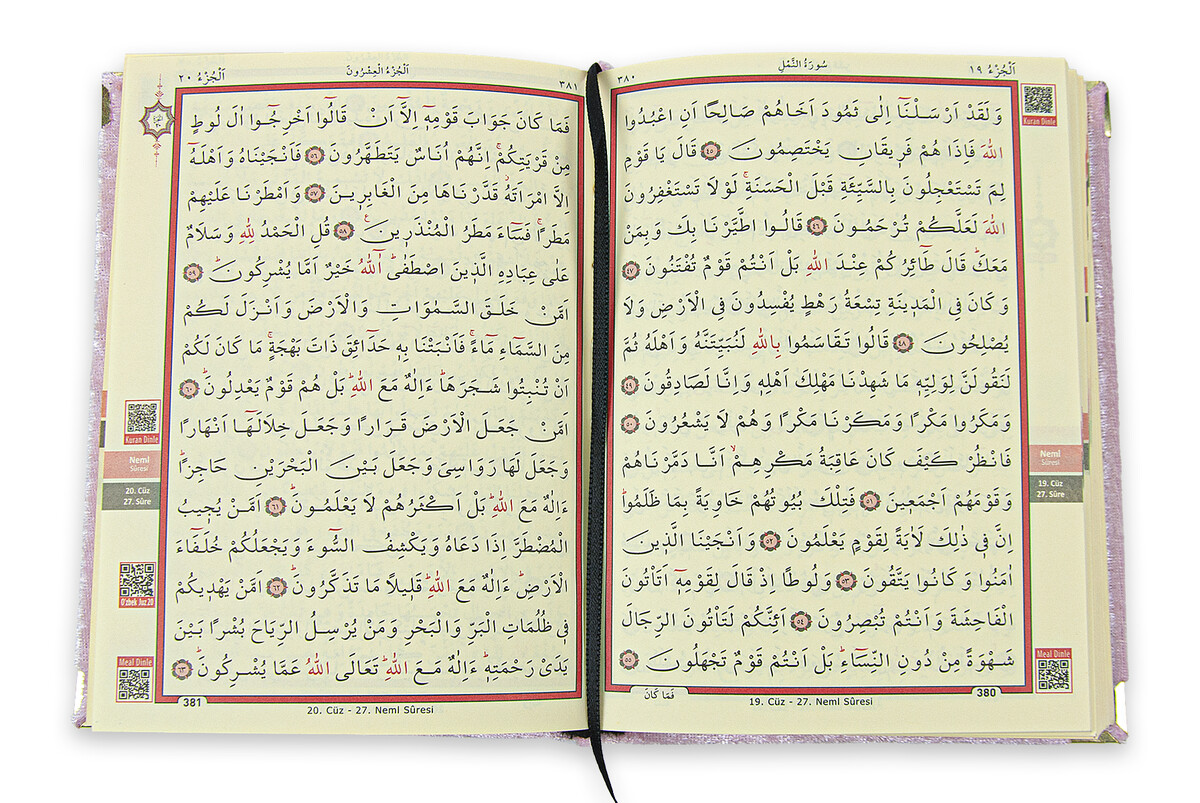 اَلْجُزْءُ ١٩
سُورَةُ النَّمْلِ
٣٨٠
وَلَقَدْ اَرْسَلْنَٓا اِلٰى ثَمُودَ اَخَاهُمْ صَالِحًا اَنِ اعْبُدُوا
اللّٰهَ فَاِذَا هُمْ فَر۪يقَانِ يَخْتَصِمُونَ ٤٥ قَالَ يَا قَوْمِ
لِمَ تَسْتَعْجِلُونَ بِالسَّيِّئَةِ قَبْلَ الْحَسَنَةِۚ لَوْلَا تَسْتَغْفِرُونَ
اللّٰهَ لَعَلَّكُمْ تُرْحَمُونَ ٤٦ قَالُوا اطَّيَّرْنَا بِكَ وَبِمَنْ
مَعَكَۜ قَالَ طَٓائِرُكُمْ عِنْدَ اللّٰهِ بَلْ اَنْتُمْ قَوْمٌ تُفْتَنُونَ ٤٧
وَكَانَ فِي الْمَد۪ينَةِ تِسْعَةُ رَهْطٍ يُفْسِدُونَ فِي الْاَرْضِ وَلَا
يُصْلِحُونَ ٤٨ قَالُوا تَقَاسَمُوا بِاللّٰهِ لَنُبَيِّتَنَّهُ وَاَهْلَهُ ثُمَّ
لَنَقُولَنَّ لِوَلِيِّه۪ مَا شَهِدْنَا مَهْلِكَ اَهْلِه۪ وَاِنَّا لَصَادِقُونَ ٤٩
وَمَكَرُوا مَكْرًا وَمَكَرْنَا مَكْرًا وَهُمْ لَا يَشْعُرُونَ ٥٠
فَانْظُرْ كَيْفَ كَانَ عَاقِبَةُ مَكْرِهِمْۙ اَنَّا دَمَّرْنَاهُمْ
وَقَوْمَهُمْ اَجْمَع۪ينَ ٥١ فَتِلْكَ بُيُوتُهُمْ خَاوِيَةً بِمَا ظَلَمُواۜ
اِنَّ ف۪ي ذٰلِكَ لَاٰيَةً لِقَوْمٍ يَعْلَمُونَ ٥٢ وَاَنْجَيْنَا الَّذ۪ينَ
اٰمَنُوا وَكَانُوا يَتَّقُونَ ٥٣ وَلُوطًا اِذْ قَالَ لِقَوْمِه۪ٓ اَتَأْتُونَ
الْفَاحِشَةَ وَاَنْتُمْ تُبْصِرُونَ ٥٤ اَئِنَّكُمْ لَتَأْتُونَ الرِّجَالَ
شَهْوَةً مِنْ دُونِ النِّسَٓاءِۜ بَلْ اَنْتُمْ قَوْمٌ تَجْهَلُونَ ٥٥
فَمَا كَانَ
380
19. Cüz - 27. Neml Sûresi
Kuran Dinle
Neml
Sûresi
19. Cüz
27. Sûre
Meal Dinle
٣٨١
اَلْجُزْءُ الْعِشْرُونَ
اَلْجُزْءُ ٢٠
فَمَا كَانَ جَوَابَ قَوْمِه۪ٓ اِلَّٓا اَنْ قَالُٓوا اَخْرِجُٓوا اٰلَ لُوطٍ
مِنْ قَرْيَتِكُمْۚ اِنَّهُمْ اُنَاسٌ يَتَطَهَّرُونَ ٥٦ فَاَنْجَيْنَاهُ وَاَهْلَهُٓ
اِلَّا امْرَاَتَهُۘ قَدَّرْنَاهَا مِنَ الْغَابِر۪ينَ ٥٧ وَاَمْطَرْنَا عَلَيْهِمْ
مَطَرًاۚ فَسَٓاءَ مَطَرُ الْمُنْذَر۪ينَ۟ ٥٨ قُلِ الْحَمْدُ لِلّٰهِ وَسَلَامٌ
عَلٰى عِبَادِهِ الَّذ۪ينَ اصْطَفٰىۜ آٰللّٰهُ خَيْرٌ اَمَّا يُشْرِكُونَۜ ٥٩
اَمَّنْ خَلَقَ السَّمٰوَاتِ وَالْاَرْضَ وَاَنْزَلَ لَكُمْ
مِنَ السَّمَٓاءِ مَٓاءًۚ فَاَنْبَتْنَا بِه۪ حَدَٓائِقَ ذَاتَ بَهْجَةٍۚ مَا كَانَ لَكُمْ
اَنْ تُنْبِتُوا شَجَرَهَاۜ ءَاِلٰهٌ مَعَ اللّٰهِۜ بَلْ هُمْ قَوْمٌ يَعْدِلُونَۜ ٦٠
اَمَّنْ جَعَلَ الْاَرْضَ قَرَارًا وَجَعَلَ خِلَالَهَٓا اَنْهَارًا
وَجَعَلَ لَهَا رَوَاسِيَ وَجَعَلَ بَيْنَ الْبَحْرَيْنِ حَاجِزًاۜ
ءَاِلٰهٌ مَعَ اللّٰهِۜ بَلْ اَكْثَرُهُمْ لَا يَعْلَمُونَۜ ٦١ اَمَّنْ يُج۪يبُ
الْمُضْطَرَّ اِذَا دَعَاهُ وَيَكْشِفُ السُّٓوءَ وَيَجْعَلُكُمْ خُلَفَٓاءَ
الْاَرْضِۜ ءَاِلٰهٌ مَعَ اللّٰهِۜ قَل۪يلًا مَا تَذَكَّرُونَۜ ٦٢ اَمَّنْ يَهْد۪يكُمْ
ف۪ي ظُلُمَاتِ الْبَرِّ وَالْبَحْرِ وَمَنْ يُرْسِلُ الرِّيَاحَ بُشْرًا بَيْنَ
يَدَيْ رَحْمَتِه۪ۜ ءَاِلٰهٌ مَعَ اللّٰهِۜ تَعَالَى اللّٰهُ عَمَّا يُشْرِكُونَۜ ٦٣
381
20. Cüz - 27. Neml Sûresi
Kuran Dinle
Neml
Sûresi
20. Cüz
27. Sûre
O'zbek Juz20
Meal Dinle